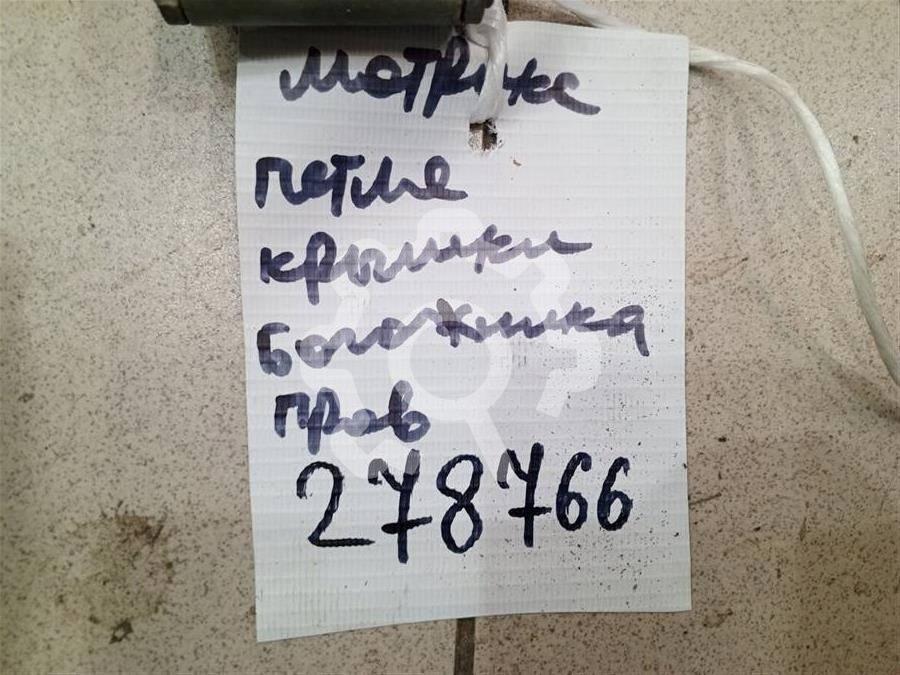 Матрикс
петле
крышки
богожника
прав
278766